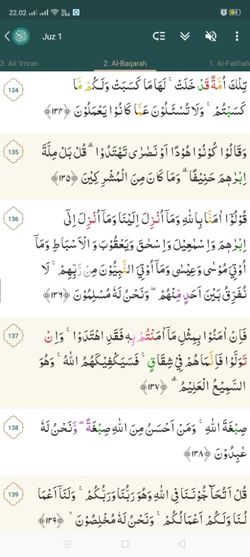 22.02
Juz 1
3. Ali 'Imran
2. Al-Baqarah
1. Al-Fatihah
134
تِلْكَ اُمَّةٌ قَدْ خَلَتْ ۚ لَهَا مَا كَسَبَتْ وَلَكُمْ مَّا
كَسَبْتُمْ ۚ وَلَا تُسْـَٔلُوْنَ عَمَّا كَانُوْا يَعْمَلُوْنَ ﴿١٣٤﴾
135
وَقَالُوْا كُوْنُوْا هُوْدًا اَوْ نَصٰرٰى تَهْتَدُوْا ۗ قُلْ بَلْ مِلَّةَ
اِبْرٰهٖمَ حَنِيْفًا ۗ وَمَا كَانَ مِنَ الْمُشْرِكِيْنَ ﴿١٣٥﴾
136
قُوْلُوْٓا اٰمَنَّا بِاللّٰهِ وَمَآ اُنْزِلَ اِلَيْنَا وَمَآ اُنْزِلَ اِلٰٓى
اِبْرٰهٖمَ وَاِسْمٰعِيْلَ وَاِسْحٰقَ وَيَعْقُوْبَ وَالْاَسْبَاطِ وَمَآ
اُوْتِيَ مُوْسٰى وَعِيْسٰى وَمَآ اُوْتِيَ النَّبِيُّوْنَ مِنْ رَّبِّهِمْ ۚ لَا
نُفَرِّقُ بَيْنَ اَحَدٍ مِّنْهُمْ ۖ وَنَحْنُ لَهٗ مُسْلِمُوْنَ ﴿١٣٦﴾
137
فَاِنْ اٰمَنُوْا بِمِثْلِ مَآ اٰمَنْتُمْ بِهٖ فَقَدِ اهْتَدَوْا ۚ وَاِنْ
تَوَلَّوْا فَاِنَّمَا هُمْ فِيْ شِقَاقٍ ۚ فَسَيَكْفِيْكَهُمُ اللّٰهُ ۚ وَهُوَ
السَّمِيْعُ الْعَلِيْمُ ۗ ﴿١٣٧﴾
138
صِبْغَةَ اللّٰهِ ۚ وَمَنْ اَحْسَنُ مِنَ اللّٰهِ صِبْغَةً ۖ وَّنَحْنُ لَهٗ
عٰبِدُوْنَ ﴿١٣٨﴾
139
قُلْ اَتُحَاۤجُّوْنَنَا فِى اللّٰهِ وَهُوَ رَبُّنَا وَرَبُّكُمْ ۚ وَلَنَآ اَعْمَا
لُنَا وَلَكُمْ اَعْمَالُكُمْ ۚ وَنَحْنُ لَهٗ مُخْلِصُوْنَ ۙ ﴿١٣٩﴾